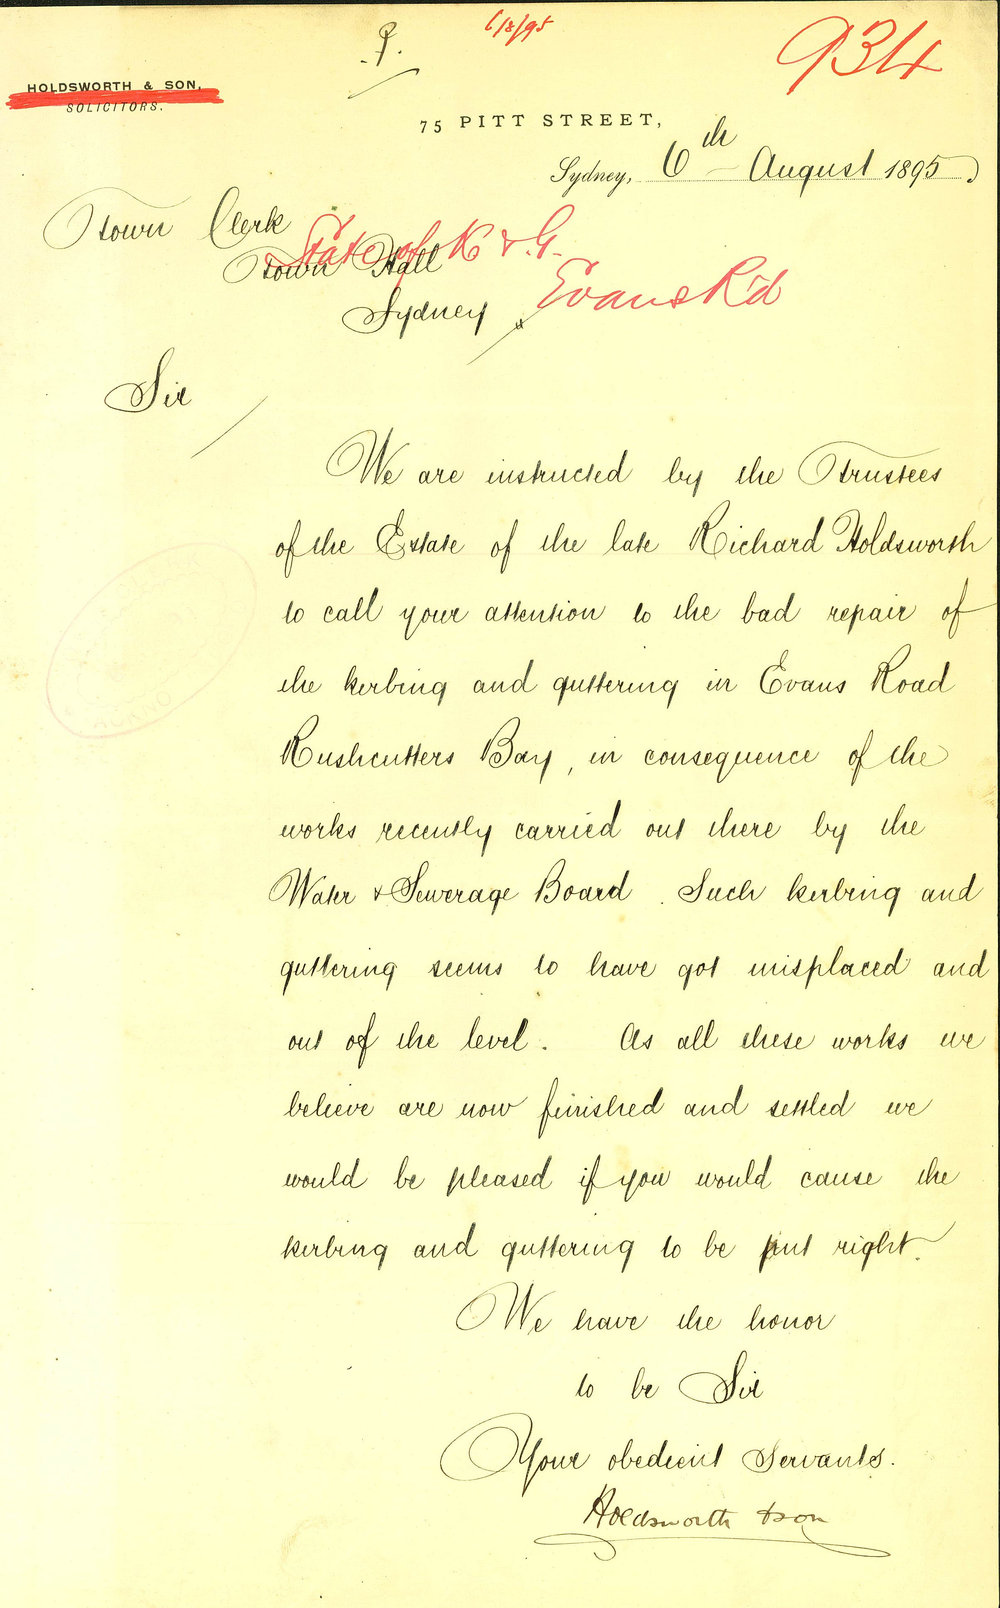 6/8/95
934
HOLDSWORTH & SON,
SOLICITORS.
75 PITT STREET,
Sydney, 6th August 1895
Town Clerk
Town Hall
Sydney
State of K & G.
Evans R'd
Sir
We are instructed by the Trustees
of the Estate of the late Richard Holdsworth
to call your attention to the bad repair of
the kerbing and guttering in Evans Road
Rushcutters Bay, in consequence of the
works recently carried out there by the
Water & Sewerage Board. Such kerbing and
guttering seems to have got misplaced and
out of the level. As all these works we
believe are now finished and settled we
would be pleased if you would cause the
kerbing and guttering to be put right.
We have the honor
to be Sir
Your obedient Servants.
Holdsworth & Son